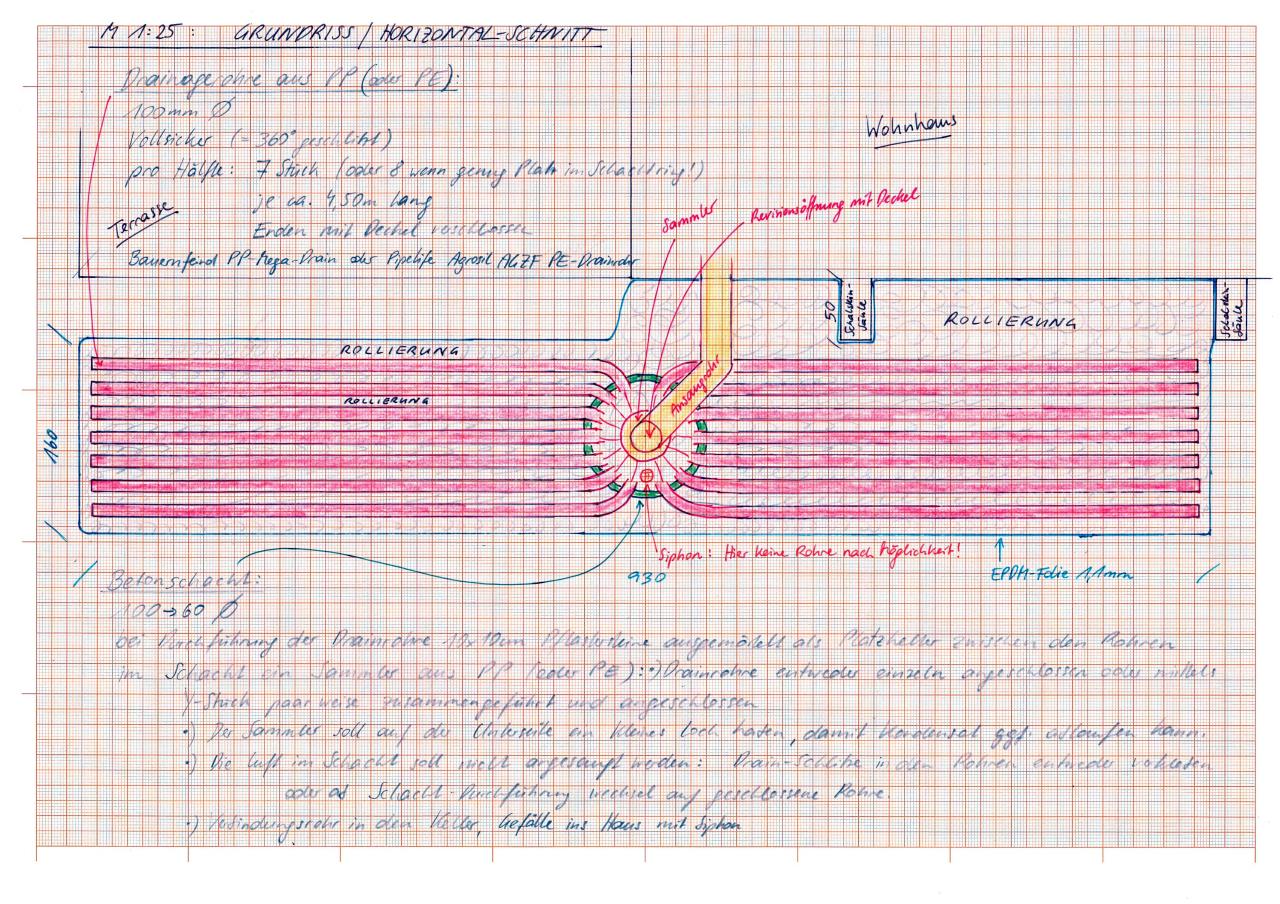 M 1:25 : GRUNDRISS / HORIZONTAL-SCHNITT
Drainagerohre aus PP (oder PE):
100mm Ø
Vollsicker (= 360° geschlitzt)
pro Hälfte: 7 Stück (oder 8 wenn genug Platz im Schachtring!)
je ca. 4,50m lang
Enden mit Deckel verschlossen
Bauernfeind PP-Mega-Drain oder Pipelife Agrosil AGZF PE-Drainrohr
Terrasse
Wohnhaus
Sammler
Revisionsöffnung mit Deckel
50
Schalstein-
säule
ROLLIERUNG
Schalstein-
säule
ROLLIERUNG
ROLLIERUNG
Ansaugrohr
160
Siphon: Hier keine Rohre nach Möglichkeit!
930
EPDM-Folie 1,1mm
Betonschacht:
100→60 Ø
bei Durchführung der Drainrohre 10x10cm Pflastersteine ausgemörtelt als Platzhalter zwischen den Rohren
im Schacht ein Sammler aus PP (oder PE): •) Drainrohre entweder einzeln angeschlossen oder mittels
Y-Stück paarweise zusammengeführt und angeschlossen
•) Der Sammler soll auf der Unterseite ein kleines Loch haben, damit Kondensat ggf. ablaufen kann.
•) Die Luft im Schacht soll nicht angesaugt werden: Drain-Schlitze in den Rohren entweder verkleben
oder ab Schacht-Durchführung Wechsel auf geschlossene Rohre.
•) Verbindungsrohr in den Keller, Gefälle ins Haus mit Siphon